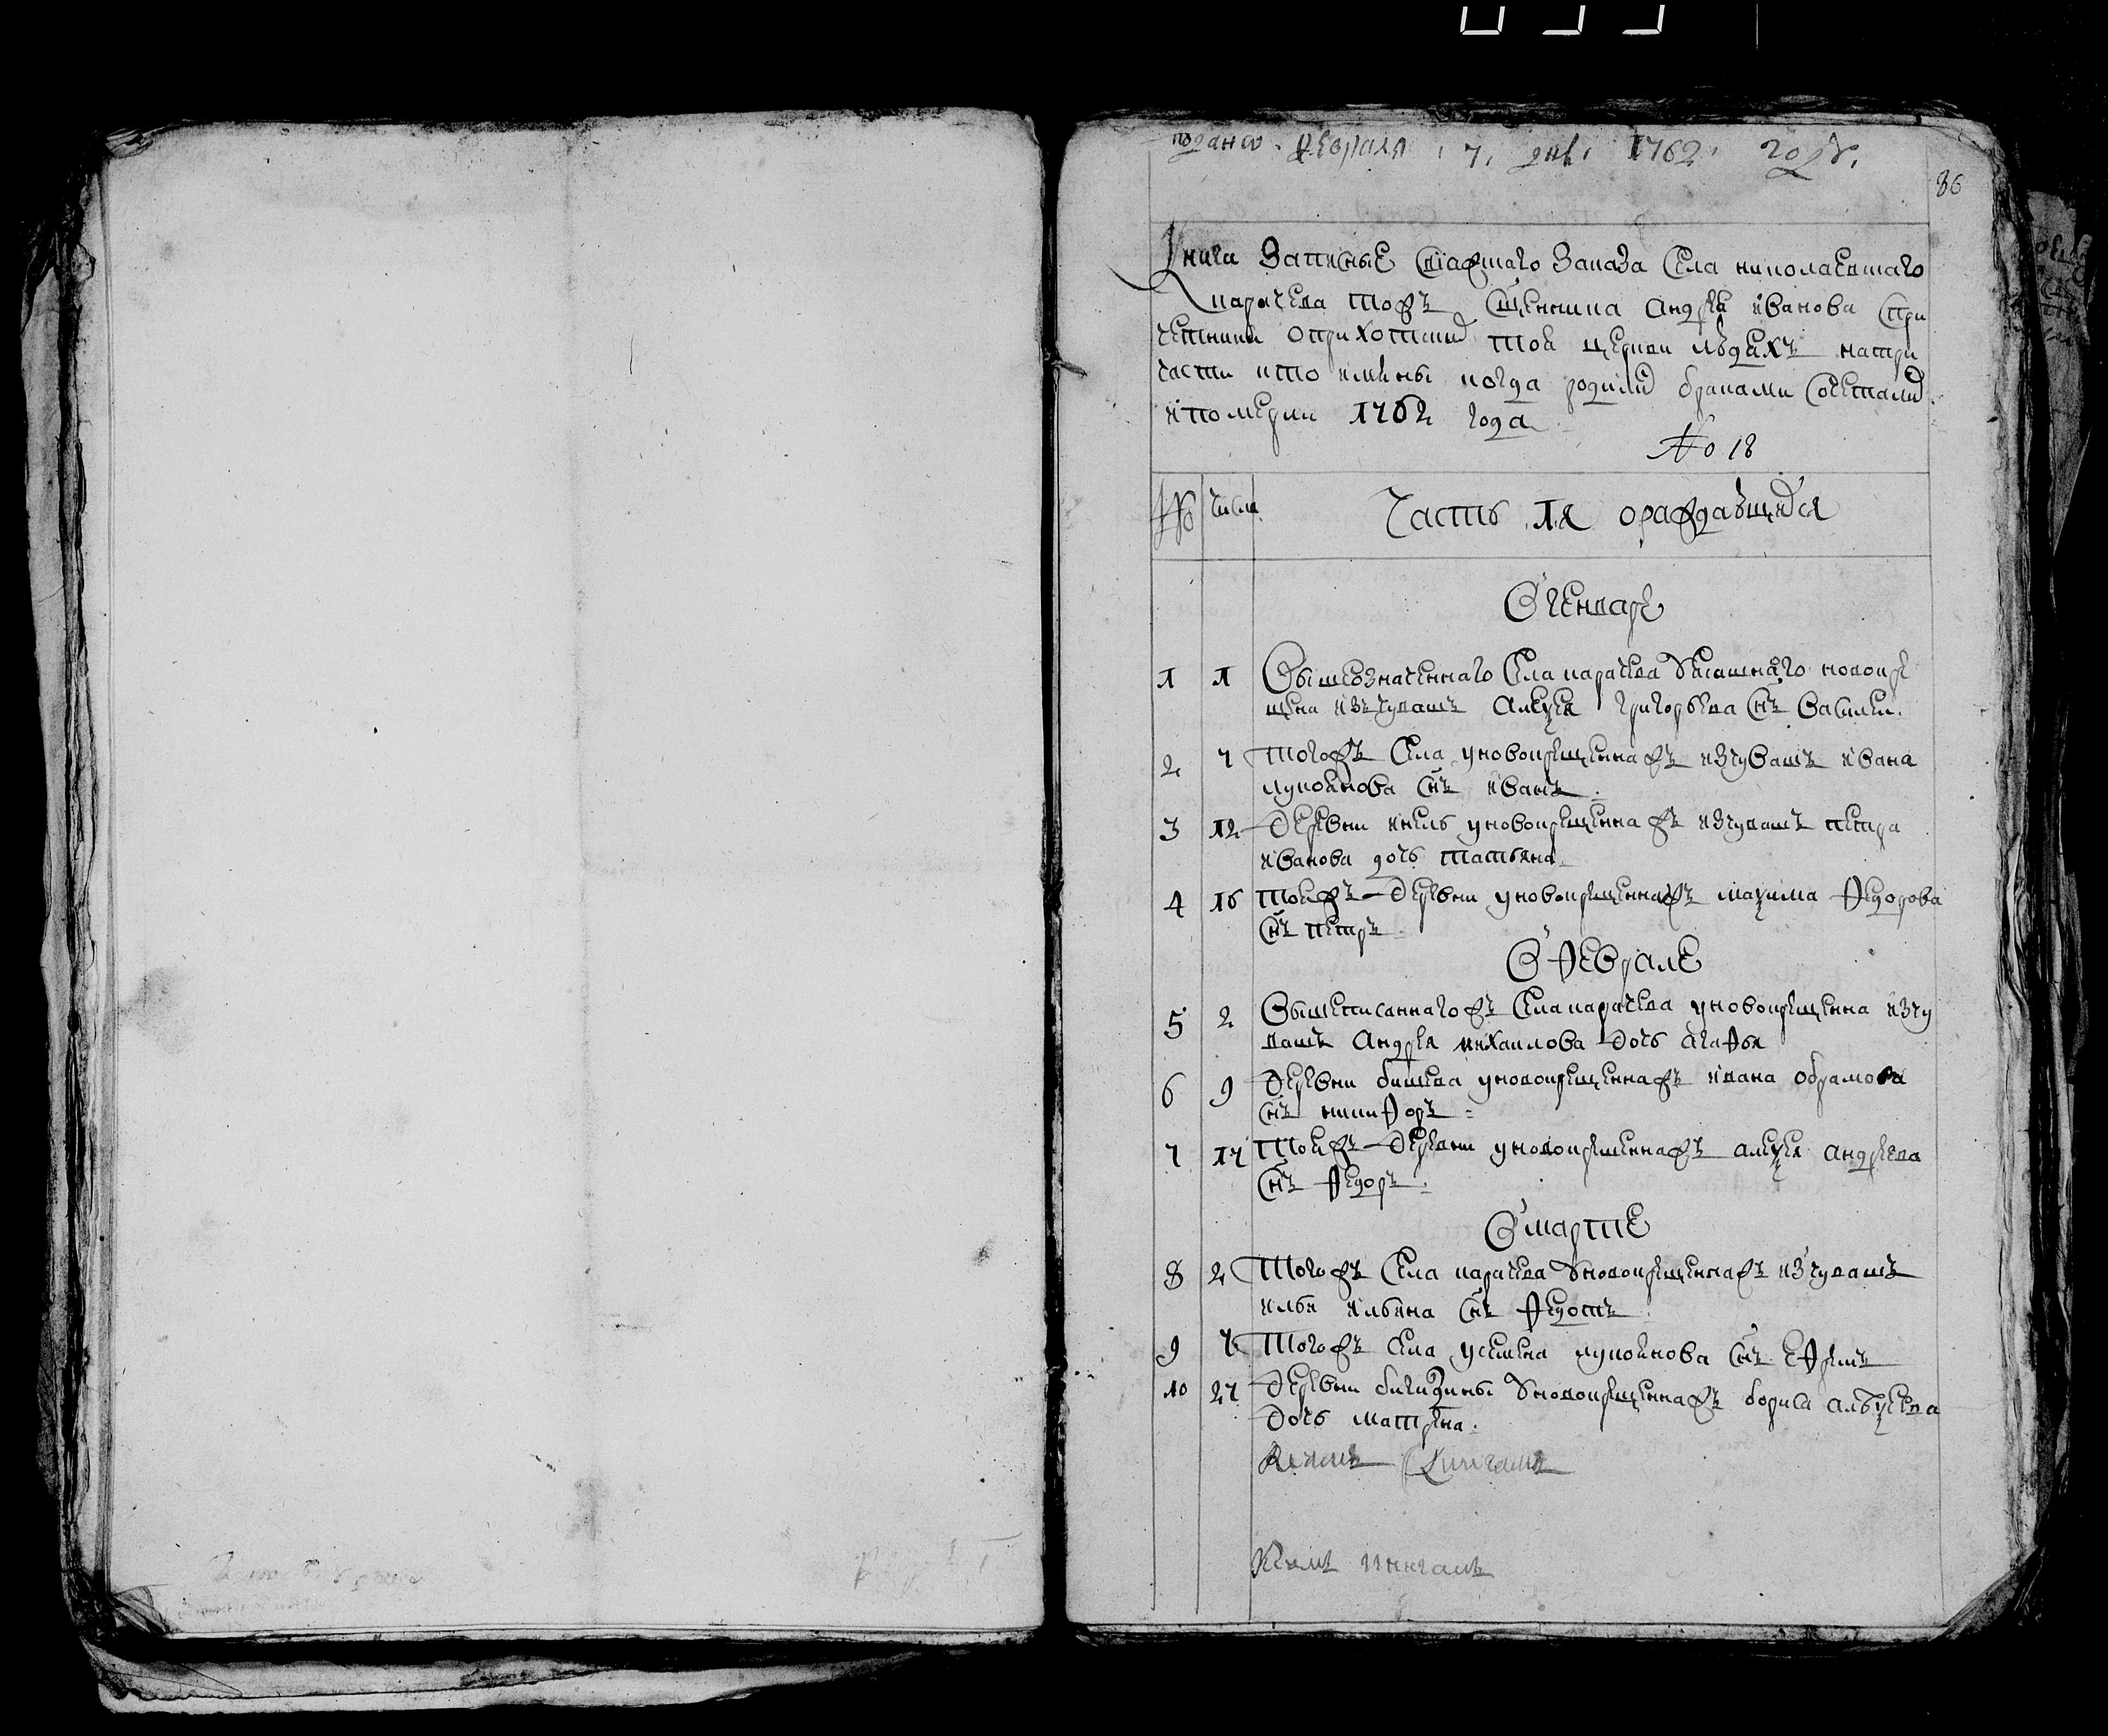 подано февраля 7 дня 1762 году
86
Книги записные свияжскаго заказа села николаевшаго
карачева тожъ сщенника андрея иванова спри
четники оприхотских тои церкви людехъ натри
части кто имяны когда родились браками сочетались
ипомерли 1762 года
No 18
No числа
Часть 1я ораждающихся
Вгенваре
1 1 Вышеозначеннаго села карачева уясашнаго новокре
щена изчувашъ алексея григорьева снъ василеи
2 7 тогожъ села уновокрещенна жъ изчувашъ ивана
лукоянова снъ иванъ
3 12 деревни уновокрещенна жъ изчувашъ петра
иванова дочь татьяна
4 16 тоижъ деревни уновокрещеннажъ максима федорова
снъ петръ
В феврале
5 2 Вышеписаннагожъ села карачева уновокрещенна изчу
вашъ андрея михаилова дочь агафья
6 9 деревни бишева уновокрещеннажъ ивана обрамова
снъ никифоръ
7 17 тоижъ деревни уновокрещеннажъ алексея андреева
снъ федоръ
Вмарте
8 2 тогожъ села карачева уновокрещеннажъ изчувашъ
ильи ильина снъ федотъ
9 7 тогожъ села усемена лукоянова снъ ефремъ
10 27 деревни уновокрещеннажъ бориса алексеева
дочь матрена